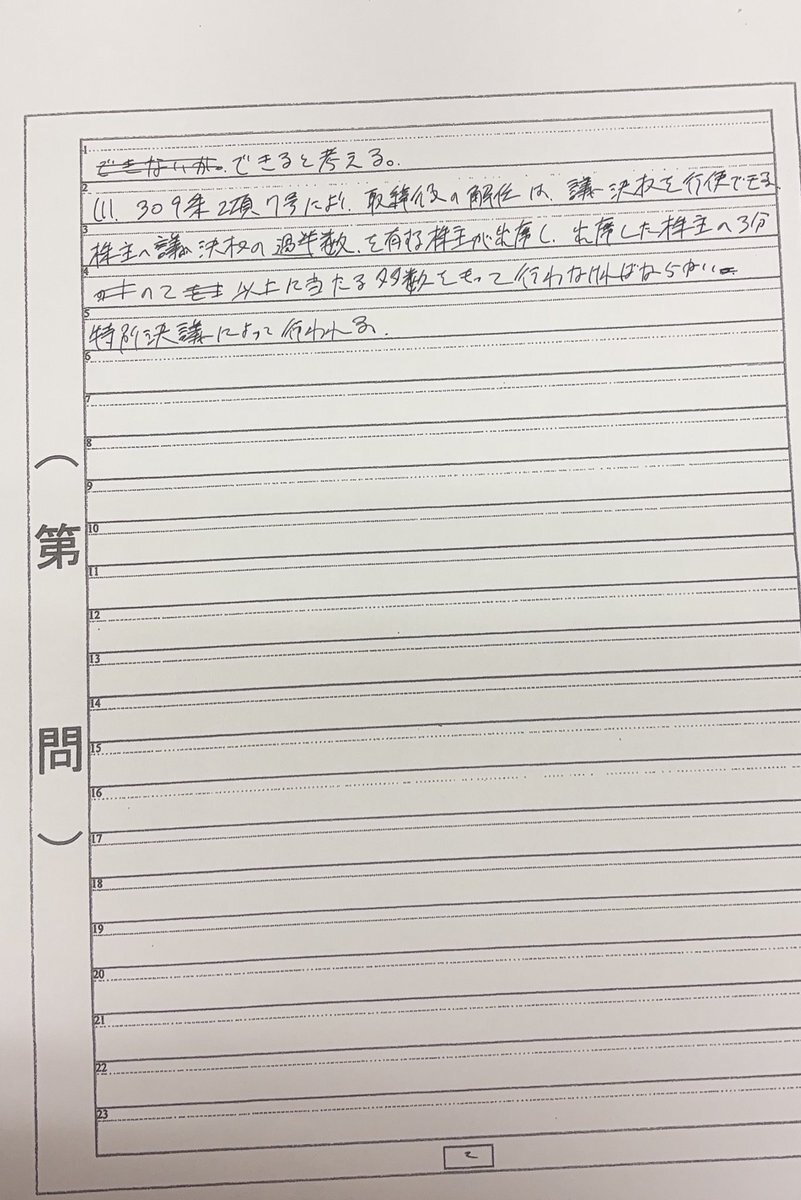 1 できないが。できると考える。
2 (1). 309条2項7号により、取締役の解任は、議決権を行使できる
3 株主の議決権の過半数を有する株主が出席し、出席した株主の3分
4 の2以上に当たる多数をもって行わなければならない
5 特別決議によって行われる。
6
7
8
9
10
11
12
13
14
15
16
17
18
19
20
21
22
23
（第　問）
2